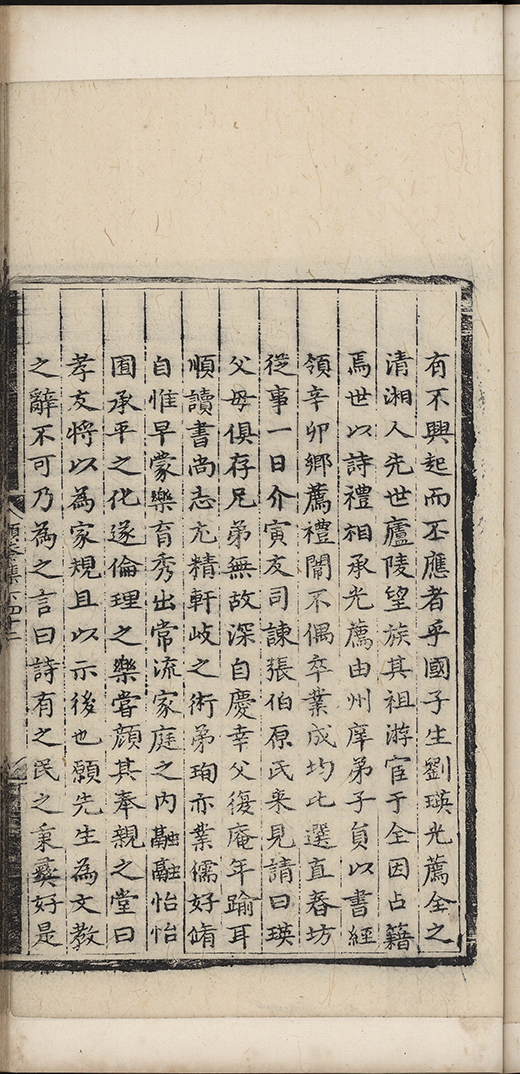 有不興起而丕應者乎國子生劉瑛光薦全之
清湘人先世廬陵望族其祖游宦于全因占籍
焉世以詩禮相承光薦由州庠弟子員以書經
領辛卯鄉薦禮闈不偶卒業成均比選直春坊
從事一日介寅友司諫張伯原氏來見請曰瑛
父母俱存兄弟無故深自慶幸父復庵年踰耳
順讀書尚志尤精軒岐之術弟珣亦業儒好脩
自惟早蒙樂育秀出常流家庭之內融融怡怡
囿承平之化遂倫理之樂嘗顏其奉親之堂曰
孝友將以為家規且以示後也願先生為文敎
之辭不可乃為之言曰詩有之民之秉彝好是
頤菴集